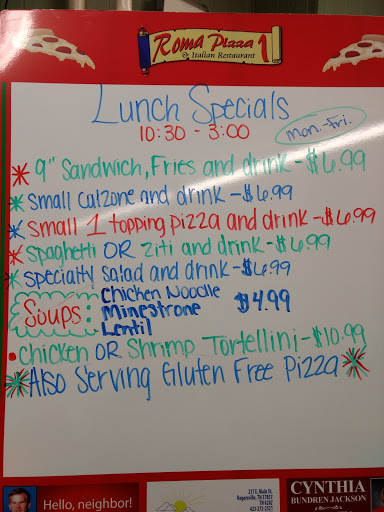 Roma Pizza 1
& Italian Restaurant
Lunch Specials
10:30 - 3:00
mon.-Fri.
9" Sandwich, Fries and drink - $6.99
Small Calzone and drink - $6.99
Small 1 topping pizza and drink - $6.99
Spaghetti OR Ziti and drink - $6.99
Specialty Salad and drink - $6.99
Soups:
Chicken Noodle
Minestrone
Lentil
$4.99
Chicken OR Shrimp Tortellini - $10.99
Also Serving Gluten Free Pizza
Hello, neighbor!
217 E. Main St.
Rogersville, TN 37857
CYNTHIA
BUNDREN JACKSON